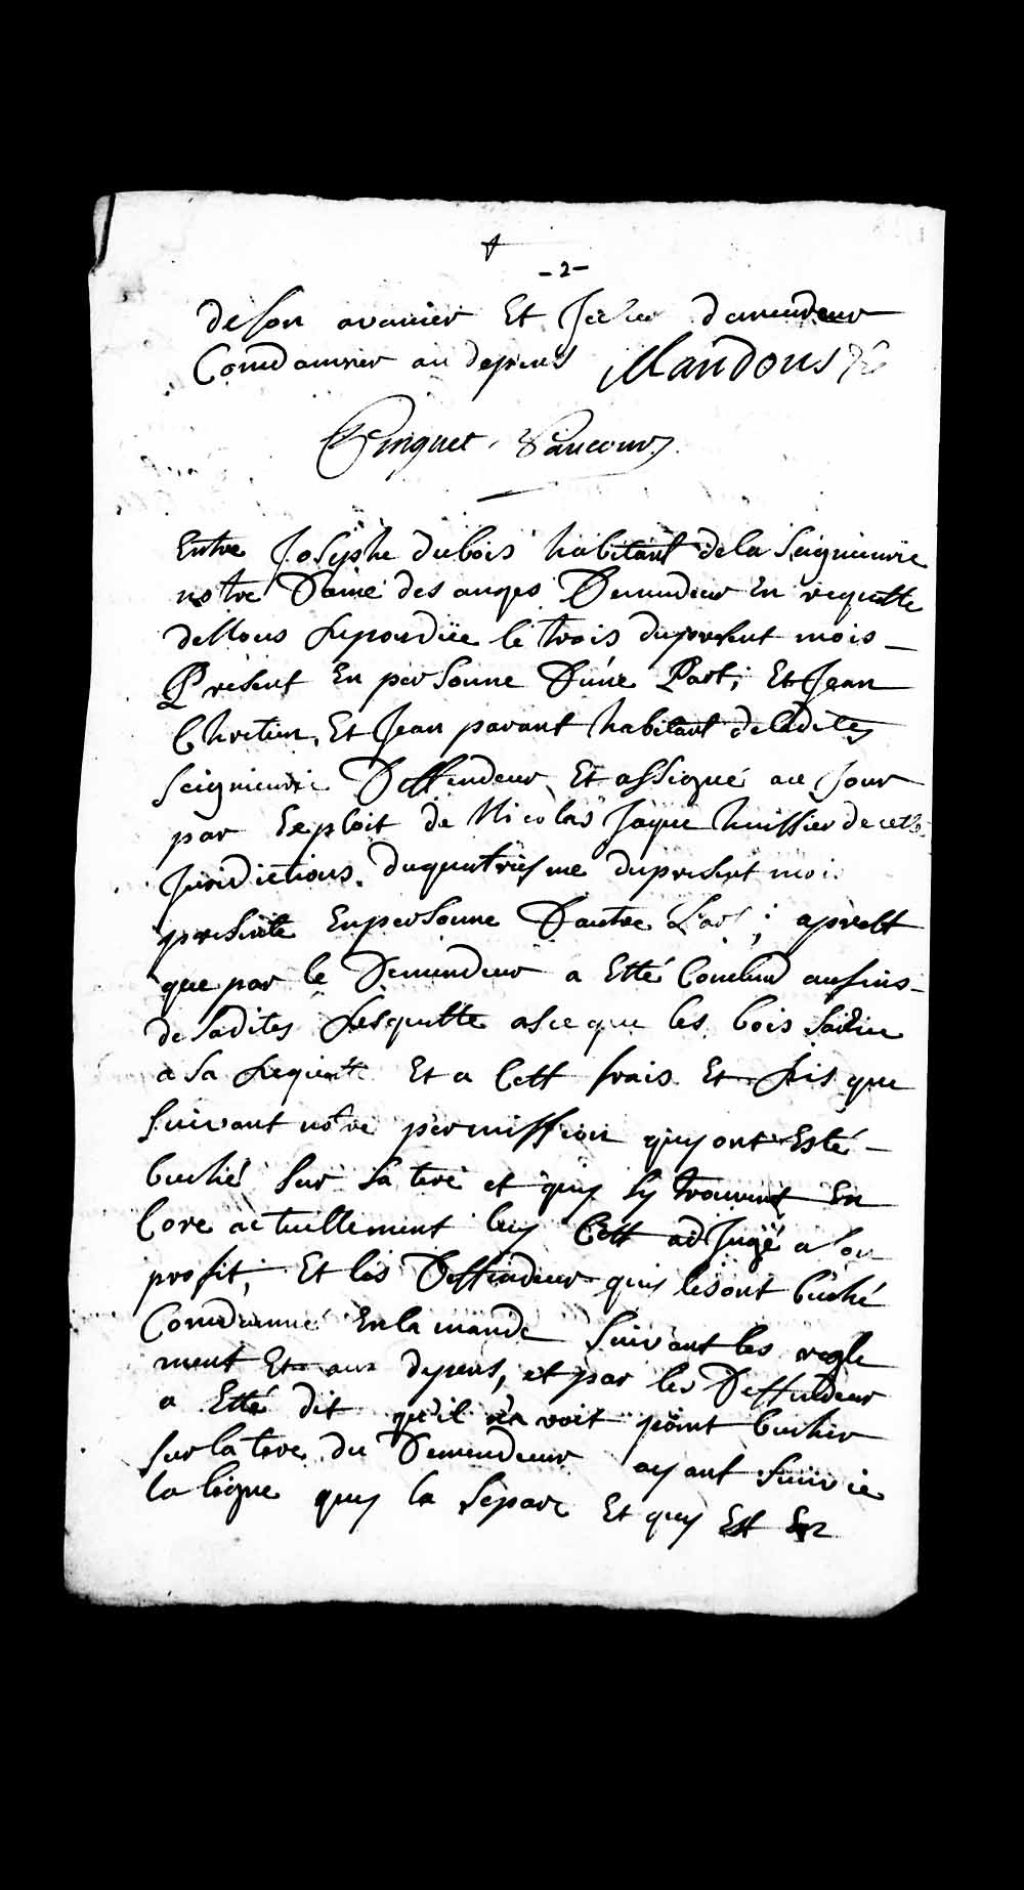 - 2 -
de son ovanier Et Jeelur demeudeur
Comdamner au depens Mandons &c
Pinguet Vaucour
Entre Josephe dubois habitant de la Seignieurie
notre Dame des anges Demendeur En requette
de Nous Reponduë le trois du present mois
Present En personne D'une Part; Et Jean
Chretien, Et Jean parant habitant de ladites
Seignieurie Deffendeur Et assigné au Jour
par Exploit de Nicolas Jaque huissier de cette
Juridictions. du quatriesme du present mois
presente En personne Dautre Part; aprest
que par le Demendeur a Etté Conclud au fins
de sadites Resquette a se que les bois saisie
a sa Requette Et a Cett frais Et Ris que
suivant notre permission quy ont Esté
buché sur sa tere et quy sy trouvent En
Core actuellement luy Cett adjugé a son
profit; Et les Deffendeur quy les ont buché
Comdamné En la mande suivant les regle
ment Et aux depens, et par les Deffendeur
a Etté dit qu'il n'avoit point bucher
sur la tere du Demendeur ayant suivie
la ligne quy la separe Et quy Est En